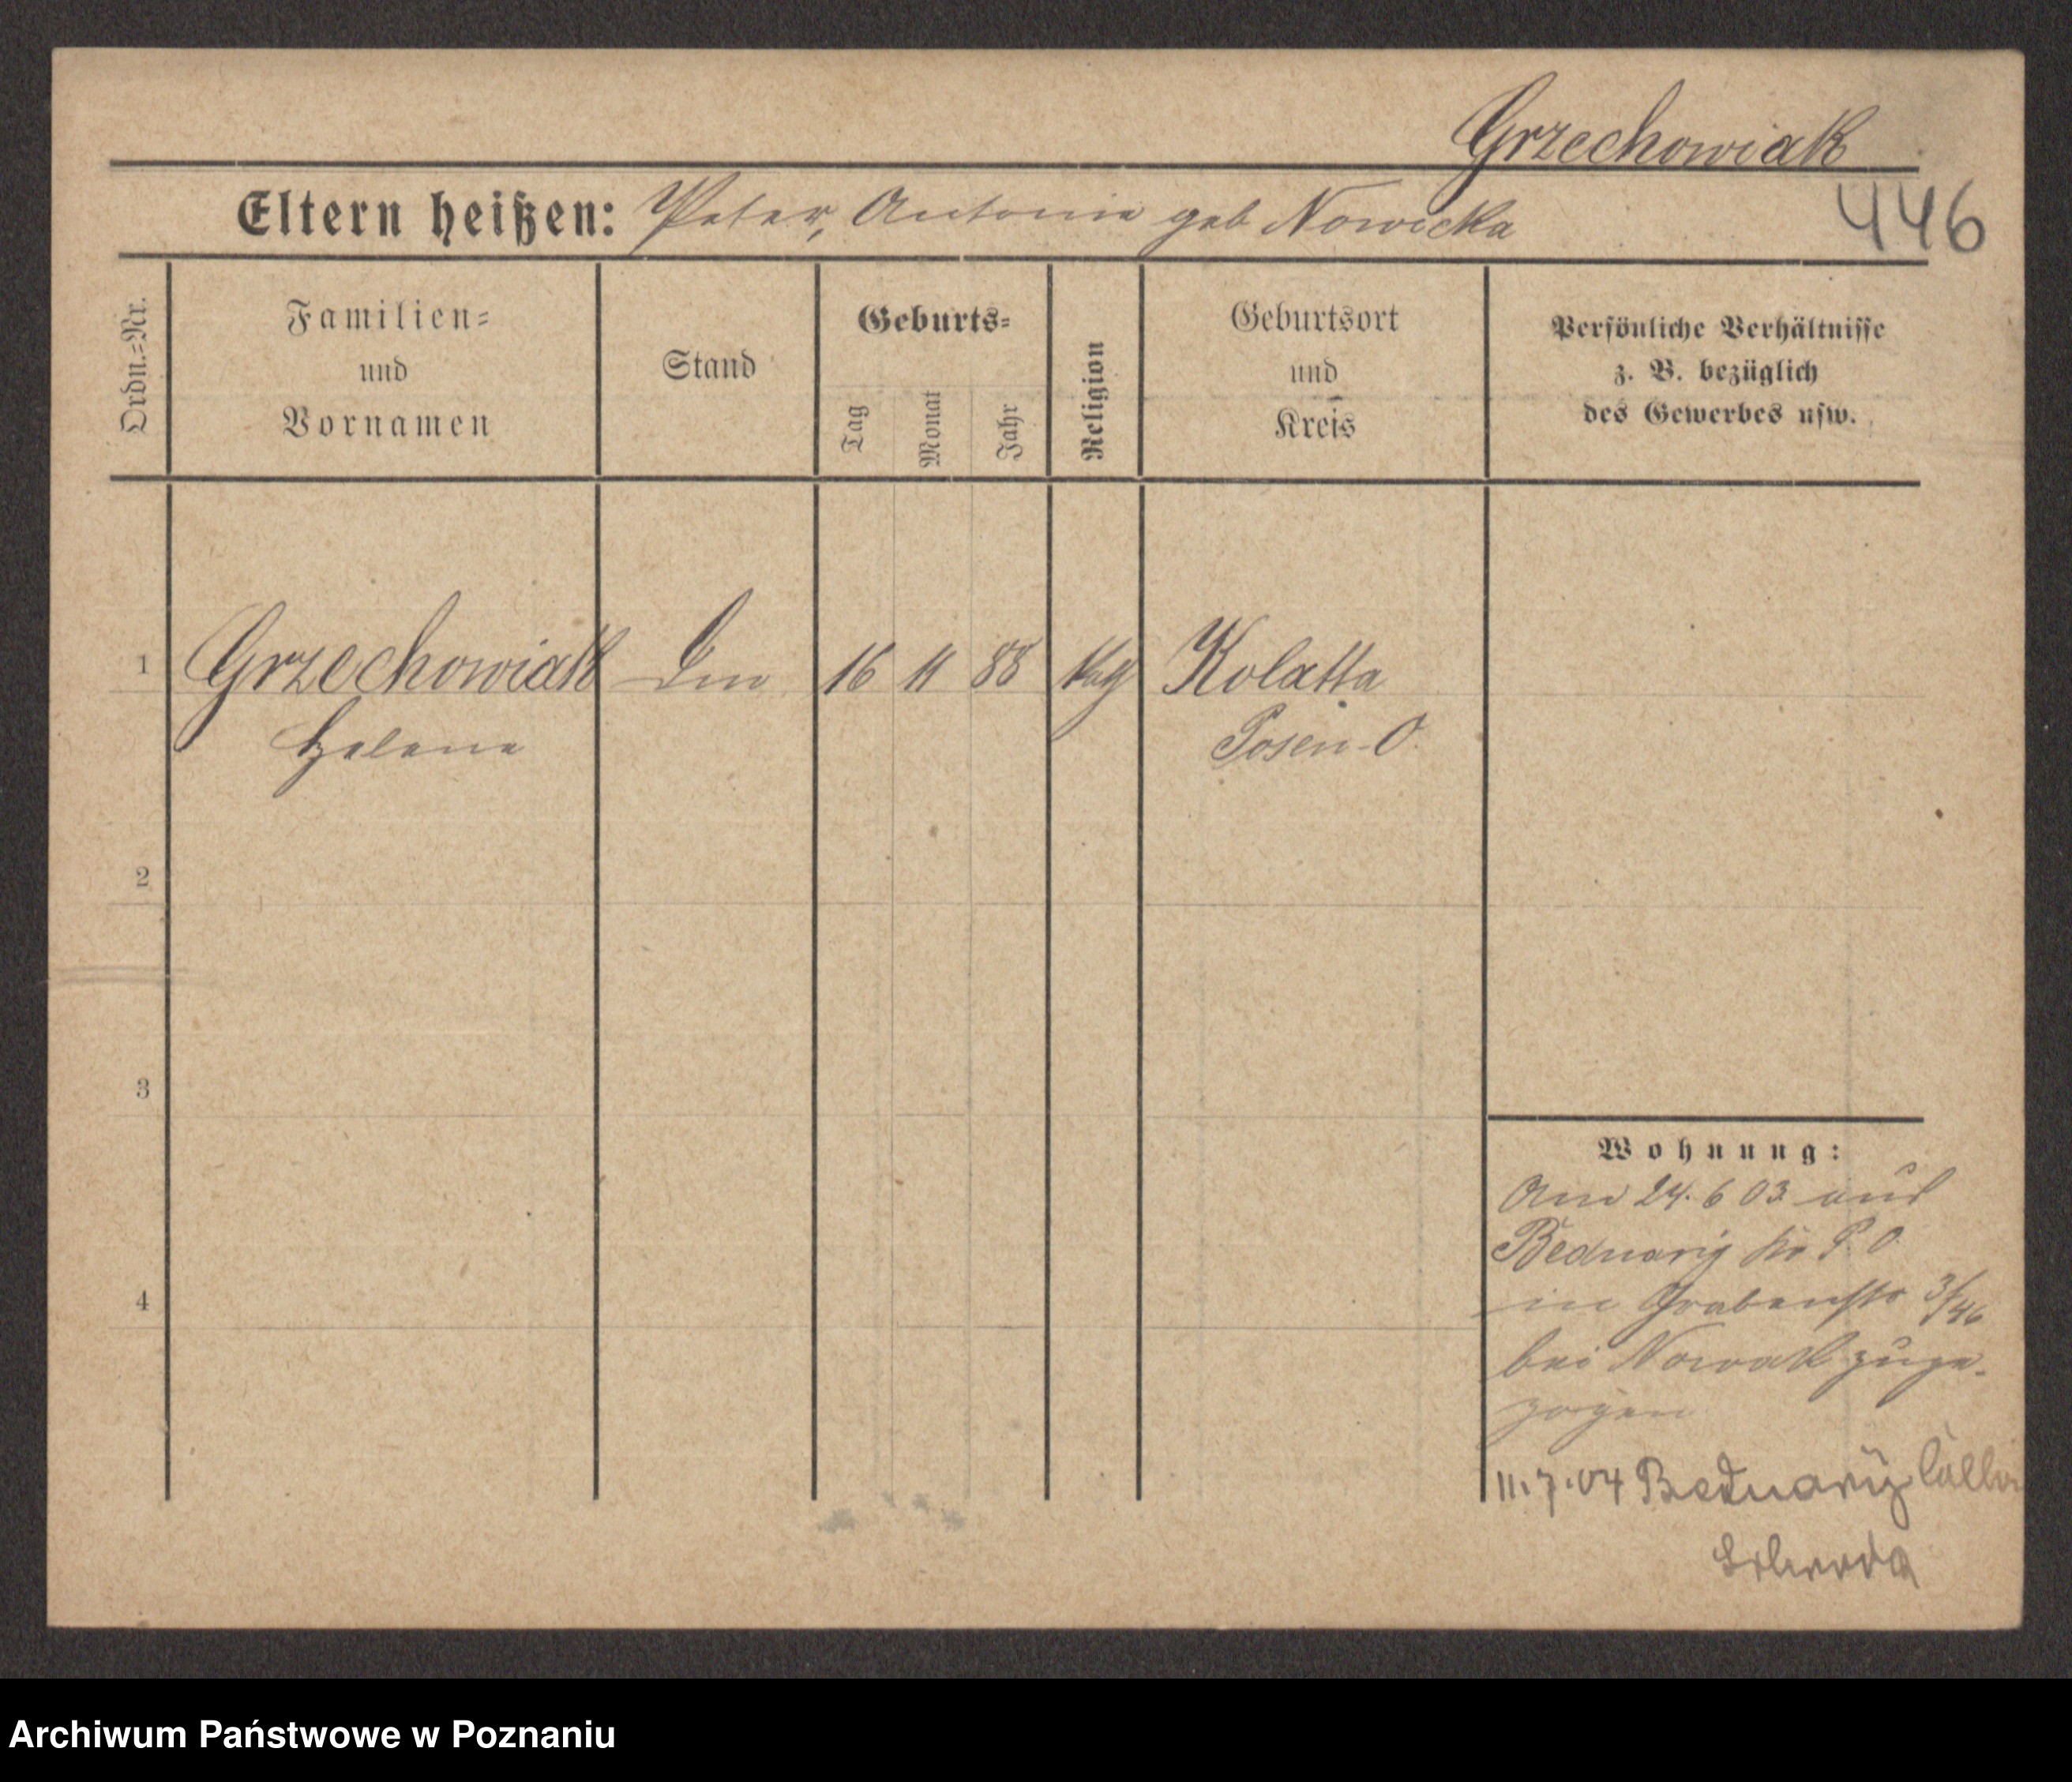 Grzechowiak
446
Eltern heißen: Peter, Antonie geb Nowicka
Ordn.=Nr.
Familien=
und
Vornamen
Stand
Geburts=
Tag
Monat
Jahr
Religion
Geburtsort
und
Kreis
Persönliche Verhältnisse
z. B. bezüglich
des Gewerbes usw.
1 Grzechowiak 16 11 88 Kolatta
Helene Posen-O.
2
3
4
Wohnung:
Am 24. 6 03 aus
Bednary Kr P. O.
in Grabenstr 3/46
bei Nowak zuge-
zogen
11.7.04 Bednary
Schroda
Archiwum Państwowe w Poznaniu